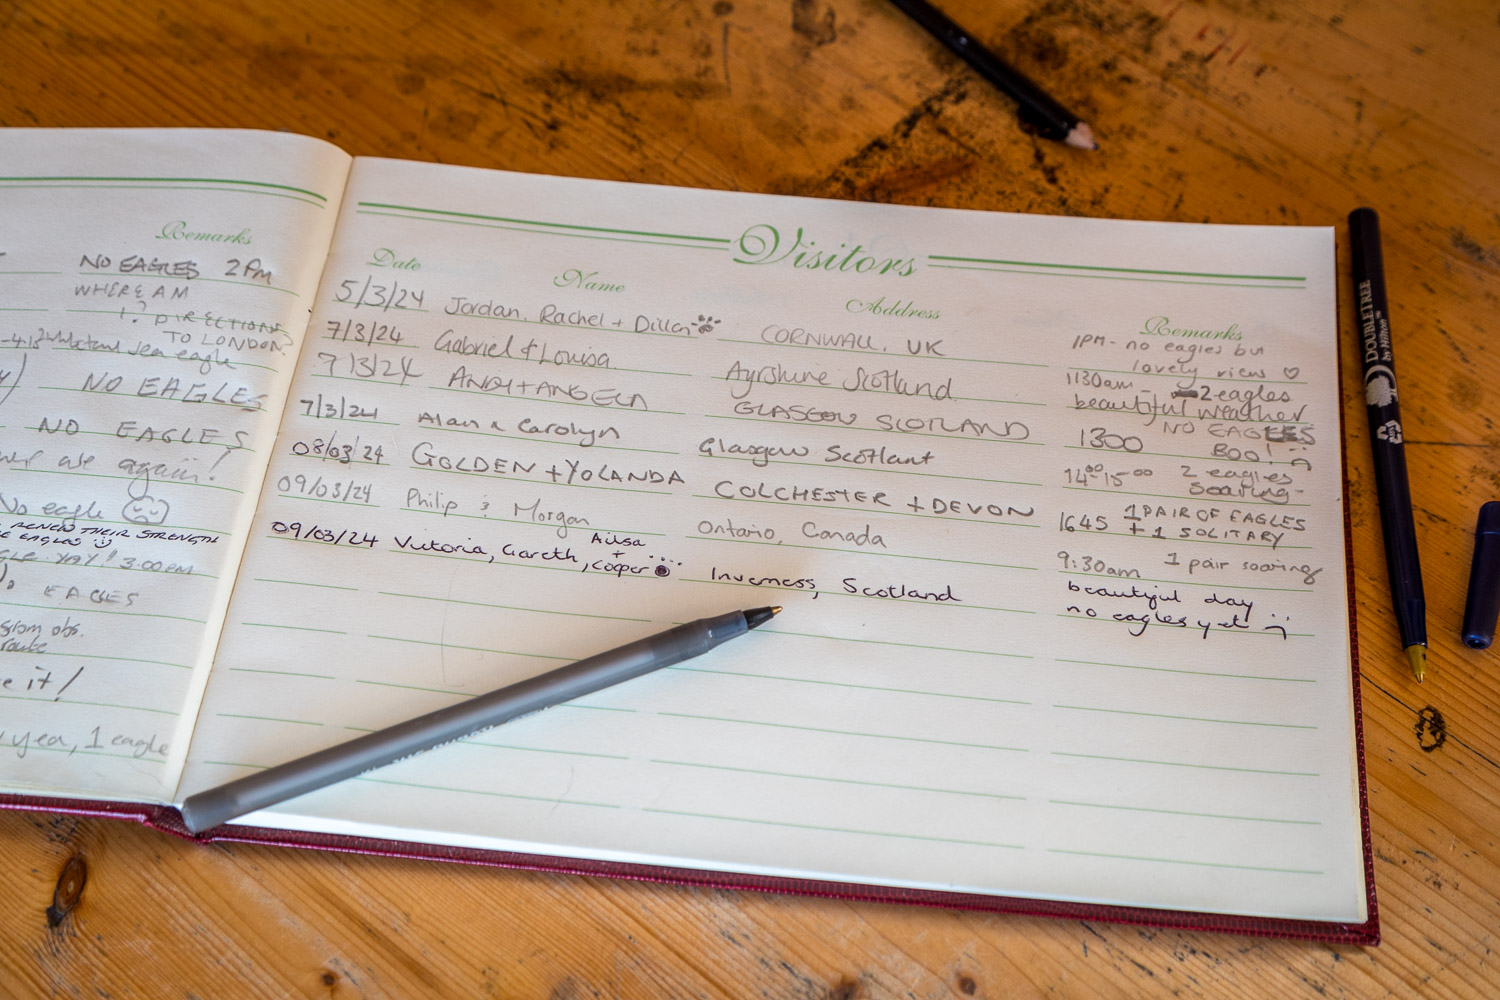 Remarks
NO EAGLES 2PM
WHERE AM
I? DIRECTIONS
TO LONDON?
sea eagle
NO EAGLES
NO EAGLES
again!
No eagle
RENEW THEIR STRENGTH
EAGLES
YAY! 3:00PM
EAGLES
obs.
route
it!
yea, 1 eagle
Visitors
Date Name Address Remarks
5/3/24 Jordan, Rachel + Dillon CORNWALL, UK 1PM - no eagles but
lovely views ♡
7/3/24 Gabriel & Louisa Ayrshire Scotland 1130am - 2 eagles
beautiful weather
7/3/24 ANDY + ANGELA GLASGOW SCOTLAND NO EAGLES
BOO!
7/3/24 Alan & Carolyn Glasgow Scotland 1300
08/03/24 GOLDEN + YOLANDA COLCHESTER + DEVON 14⁰⁰-15⁰⁰ 2 eagles
soaring-
09/03/24 Philip & Morgan Ontario, Canada 1645 1 PAIR OF EAGLES
+ 1 SOLITARY
9:30am 1 pair soaring
09/03/24 Victoria, Gareth, Ailsa
+
Cooper Inverness, Scotland beautiful day
no eagles yet
DOUBLETREE
by Hilton™